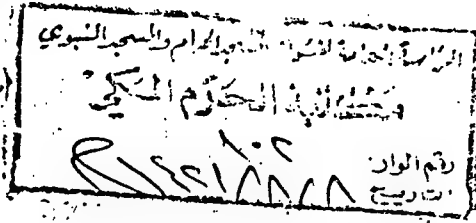 الرئاسة العامة لشئون المسجد الحرام والمسجد النبوي
مكتبة الحرم المكي
رقم الوارد: ١٠٢
التاريخ ١٤٢١/٨/٨